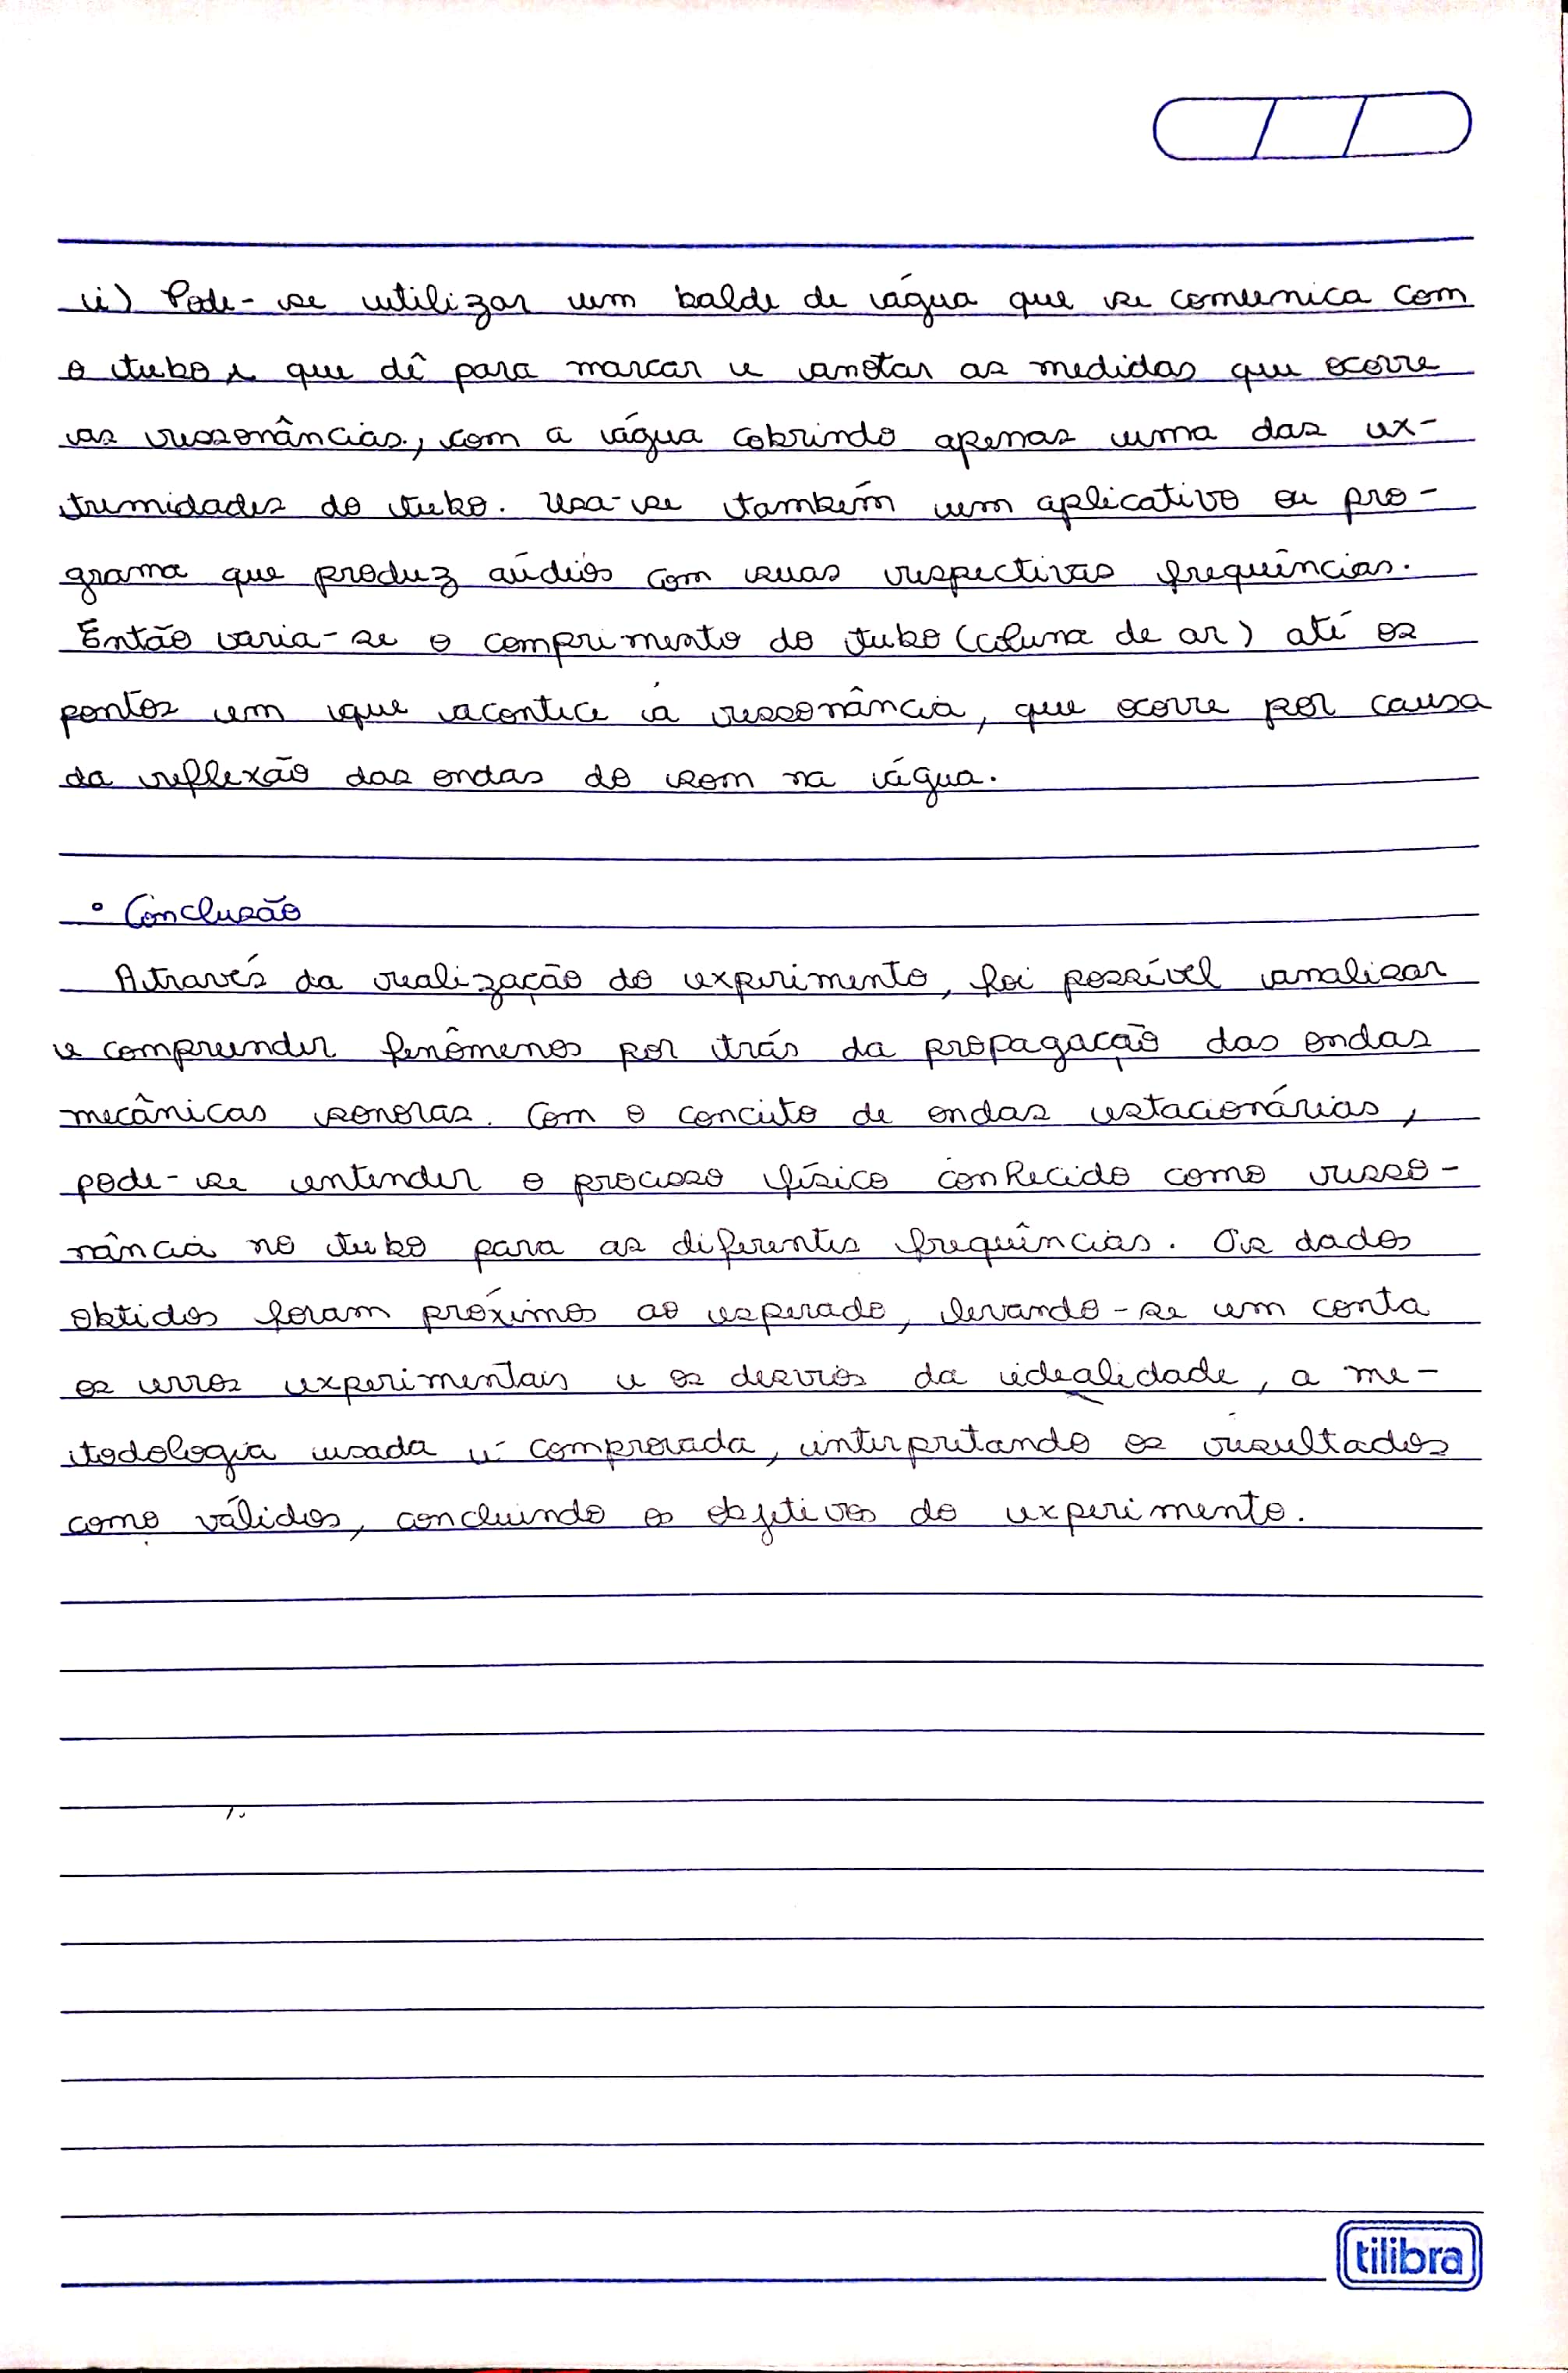 ii) Pode-se utilizar um balde de água que se comunica com
o tubo e que dê para marcar e anotar as medidas que ocorre
as ressonâncias, com a água cobrindo apenas uma das ex-
tremidades do tubo. Usa-se também um aplicativo ou pro-
grama que produz aúdios com suas respectivas frequências.
Então varia-se o comprimento do tubo (coluna de ar) até os
pontos em que acontece a ressonância, que ocorre por causa
da reflexão das ondas do som na água.
° Conclusão
Através da realização do experimento, foi possível analisar
e compreender fenômenos por trás da propagação das ondas
mecânicas sonoras. Com o conceito de ondas estacionárias,
pode-se entender o processo físico conhecido como resso-
nância no tubo para as diferentes frequências. Os dados
obtidos foram próximos ao esperado, levando-se em conta
os erros experimentais e os desvios da idealidade, a me-
todologia usada é comprovada, interpretando os resultados
como válidos, concluindo os objetivos do experimento.
tilibra